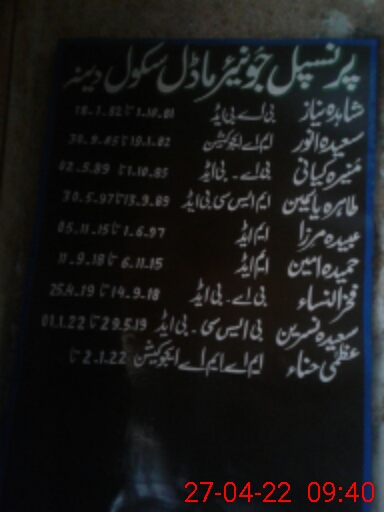 پرنسپل جونیئر ماڈل سکول دینہ
شاہدہ نیاز بی اے بی ایڈ 1.10.81 تا 18.1.82
سعیدہ انور ایم اے ایجوکیشن 19.1.82 تا 30.9.85
منیرہ کیانی بی اے۔ بی ایڈ 1.10.85 تا 02.5.89
طاہرہ یاسمین ایم ایس سی بی ایڈ 13.9.89 تا 30.5.97
عبیدہ مرزا ایم ایڈ 1.6.97 تا 05.11.15
حمیدہ امین ایم ایڈ 6.11.15 تا 11.9.18
فخرالنساء بی اے۔ بی ایڈ 14.9.18 تا 25.4.19
سعیدہ نسرین بی ایس سی۔ بی ایڈ 29.5.19 تا 01.1.22
عظمٰی حناء ایم اے ایم اے ایجوکیشن 2.1.22 تا
27-04-22 09:40